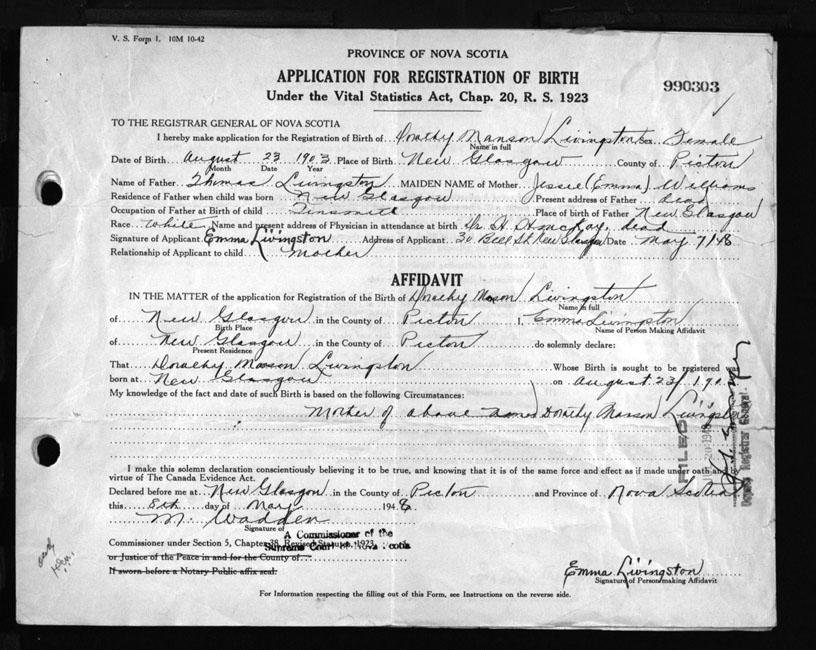 V. S. Form 1. 10M 10-42
PROVINCE OF NOVA SCOTIA
APPLICATION FOR REGISTRATION OF BIRTH
990303
Under the Vital Statistics Act, Chap. 20, R. S. 1923
TO THE REGISTRAR GENERAL OF NOVA SCOTIA
I hereby make application for the Registration of Birth of Dorothy Manson Livingston Sex Female
Name in full
Date of Birth August 23 1903 Place of Birth New Glasgow County of Picton
Month Date Year
Name of Father Thomas Livingston MAIDEN NAME of Mother Jessie (Emma) Williams
Residence of Father when child was born New Glasgow Present address of Father dead
Occupation of Father at Birth of child Tinsmith Place of birth of Father New Glasgow
Race White Name and present address of Physician in attendance at birth Dr. H. H. McKay, dead
Signature of Applicant Emma Livingston Address of Applicant 30 Bell St New Glasgow Date May 7/48
Relationship of Applicant to child Mother
AFFIDAVIT
IN THE MATTER of the application for Registration of the Birth of Dorothy Manson Livingston
Name in full
of New Glasgow in the County of Picton I, Emma Livingston
Birth Place Name of Person Making Affidavit
of New Glasgow in the County of Picton do solemnly declare:
Present Residence
That Dorothy Manson Livingston Whose Birth is sought to be registered was
born at New Glasgow on August 23/190
My knowledge of the fact and date of such Birth is based on the following Circumstances:
Mother of above named Dorothy Manson Livingston
FILED
1948
Deputy Registrar General
I make this solemn declaration conscientiously believing it to be true, and knowing that it is of the same force and effect as if made under oath and
virtue of The Canada Evidence Act.
Declared before me at New Glasgow in the County of Picton and Province of Nova Scotia
this 8th day of May 1948
M. Wadden
Signature of
A Commissioner of the
Commissioner under Section 5, Chapter 38, Revised Statutes, 1923
Supreme Court of Nova Scotia
or Justice of the Peace in and for the County of
If sworn before a Notary Public affix seal.
Emma Livingston
Signature of Person making Affidavit
For Information respecting the filling out of this Form, see Instructions on the reverse side.